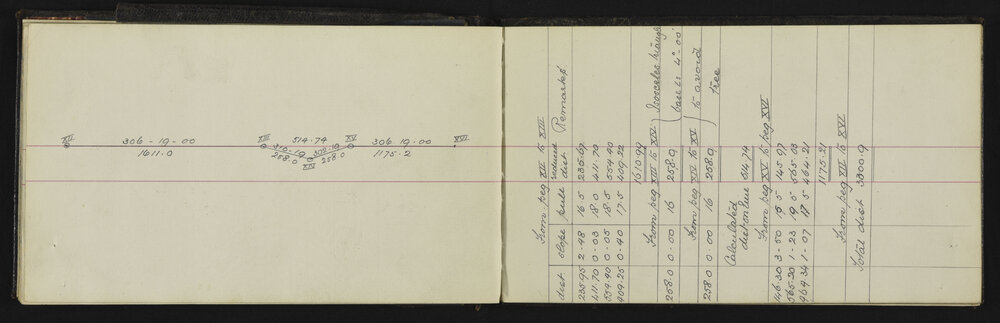 XII 306-19-00 XIII 514.74 XV 306 19.00 XVI
1611.0 310-19 302.19 1175.2
258.0 XIV 258.0
From peg XII to XIII
dist slope pull reduced dist Remarks
235.95 2.48 16.5 235.67
411.70 0-03 18.0 411.70
554.40 0-05 18.5 554.40
409.25 0-40 17.5 409.22
1610.99
From peg XIII to XIV Isosceles triangle
258.0 0.00 16 258.0 base Ls 4°.00'
From peg XIV to XV to avoid
258.0 0.00 16 258.0 tree
Calculated
dist on line 514.74
From peg XV to peg XVI
146.30 3-50 15.5 145.97
565.20 1-23 19.5 565.03
464.34 1-07 17.5 464.21
1175.21
From peg XII to XVI
Total dist 3300.9